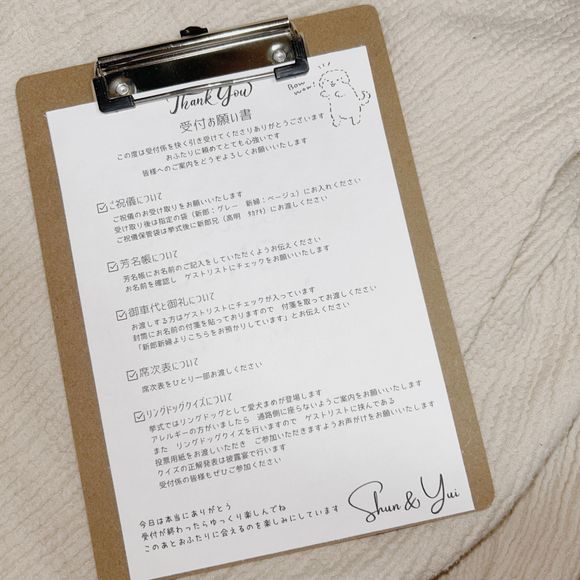 Thank You
Bow
wow!
受付お願い書
この度は受付係を快く引き受けてくださりありがとうございます
おふたりに頼めてとても心強いです
皆様へのご案内をどうぞよろしくお願いいたします
ご祝儀について
ご祝儀のお受け取りをお願いいたします
受け取り後は指定の袋（新郎：グレー 新婦：ベージュ）にお入れください
ご祝儀保管袋は挙式後に新郎兄（高明 タカアキ）にお渡しください
芳名帳について
芳名帳にお名前のご記入をしていただくようお伝えください
お名前を確認し ゲストリストにチェックをお願いいたします
御車代と御礼について
お渡しする方はゲストリストにチェックが入っています
封筒にお名前の付箋を貼っておりますので 付箋を取ってお渡しください
「新郎新婦よりこちらをお預かりしています」とお伝えください
席次表について
席次表をひとり一部お渡しください
リングドッグクイズについて
挙式ではリングドッグとして愛犬まめが登場します
アレルギーの方がいましたら 通路側に座らないようご案内をお願いいたします
また リングドッグクイズを行いますので ゲストリストに挟んである
投票用紙をお渡しいただき ご参加いただきますようお声がけをお願いいたします
クイズの正解発表は披露宴で行います
受付係の皆様もぜひご参加ください
今日は本当にありがとう
受付が終わったらゆっくり楽しんでね
このあとおふたりに会えるのを楽しみにしています
Shun & Yui